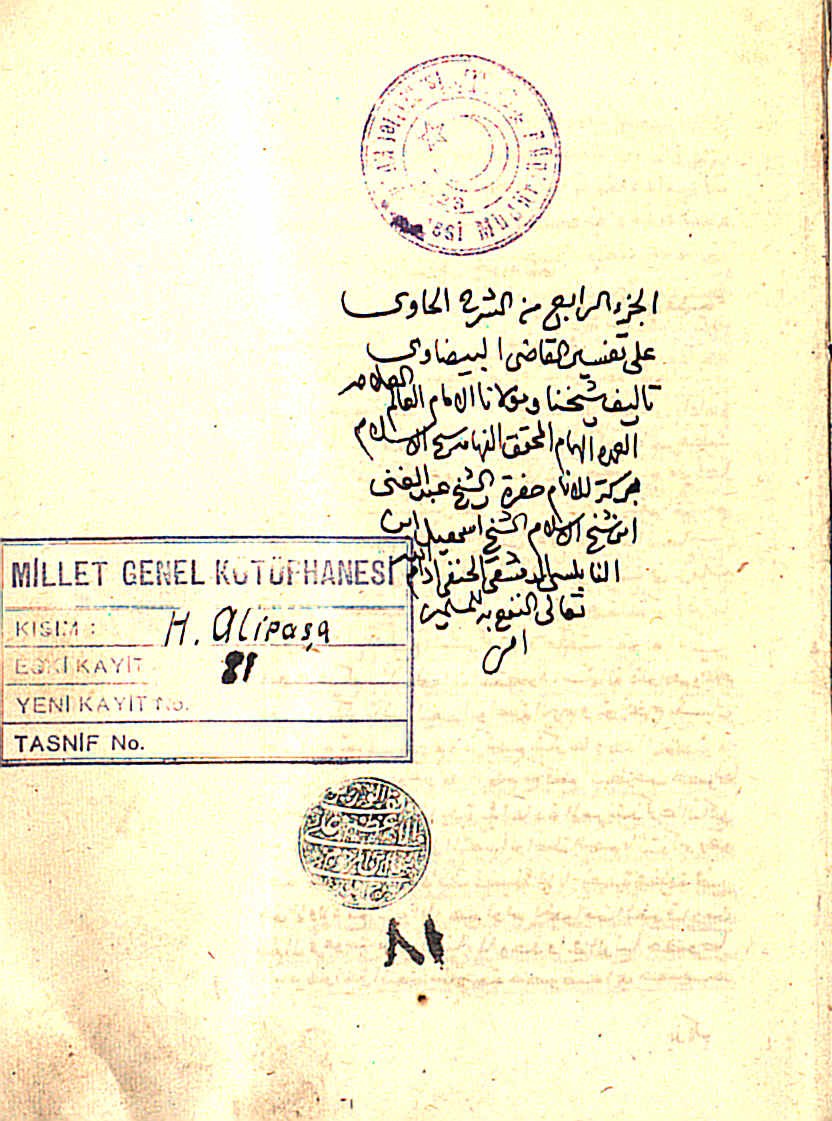 الجزء الرابع من الشرح الحاوى
على تفسير القاضى البيضاوى
تاليف شيخنا ومولانا الامام العالم العلامه
العمده الهمام المحقق الفهامه شيخ الاسلام
بركة للانام حضرة الشيخ عبد الغنى
ابن شيخ الاسلام الشيخ اسمعيل ابن
النابلسى الدمشقى الحنفى ادام الله
تعالى النفع به للمسلمين
امين
MİLLET GENEL KÜTÜPHANESİ
KISIM : H. Alipaşa
ESKİ KAYIT 81
YENİ KAYIT No.
TASNİF No.
٨١